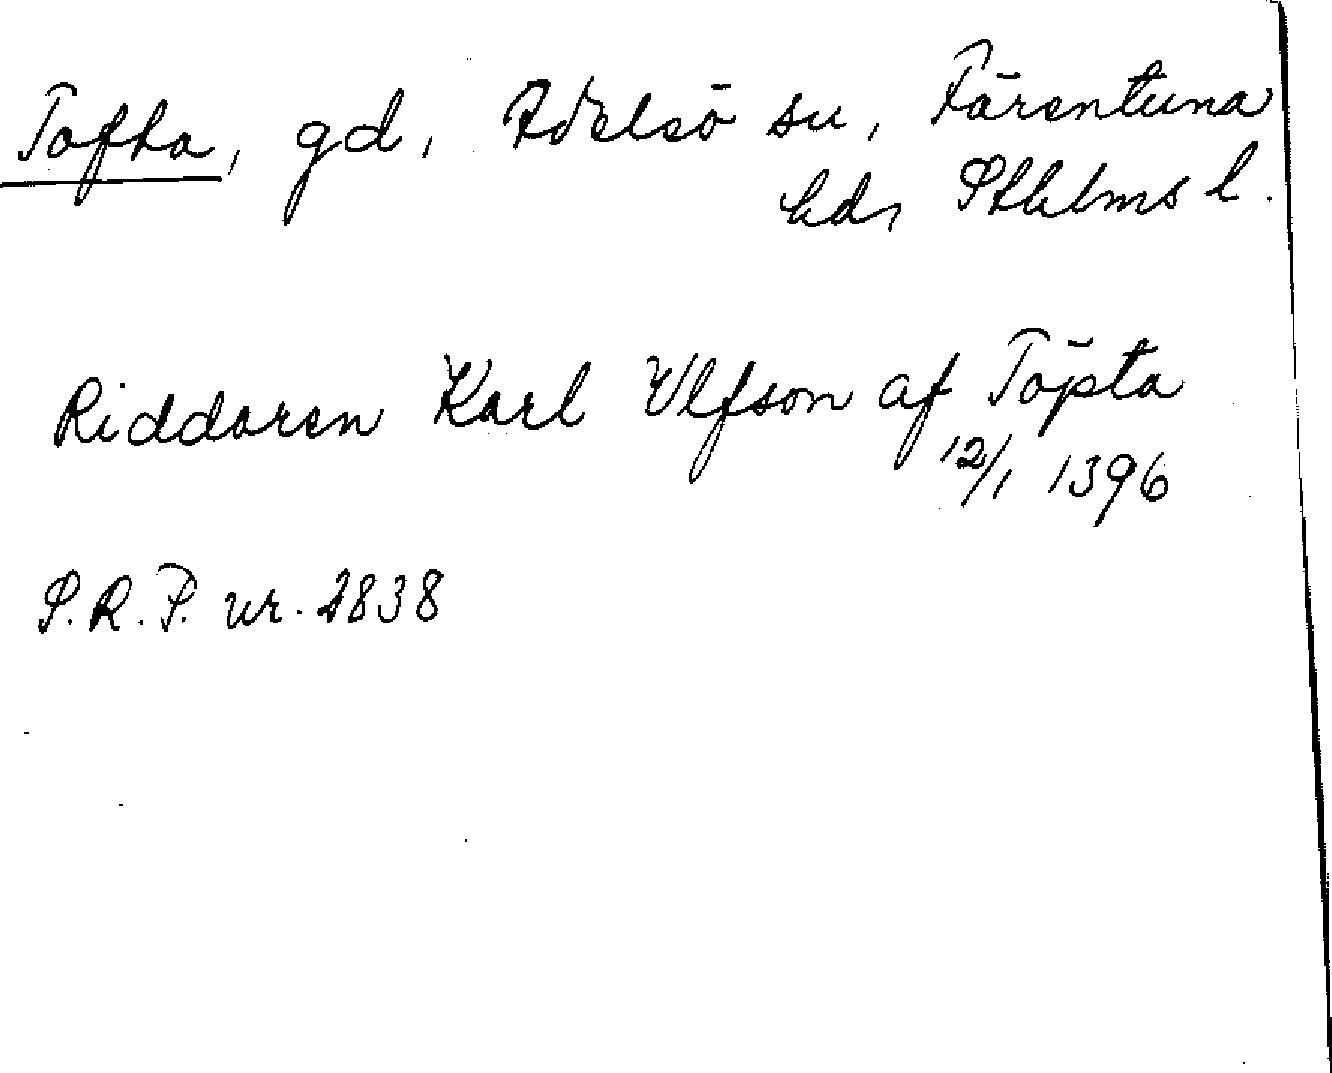 Tofta, gd, Adelsö sn, Färentuna
hd, Sthlms l.
Riddaren Karl Ulfson af Töpsta
12/1 1396
S.R.P. nr. 2838